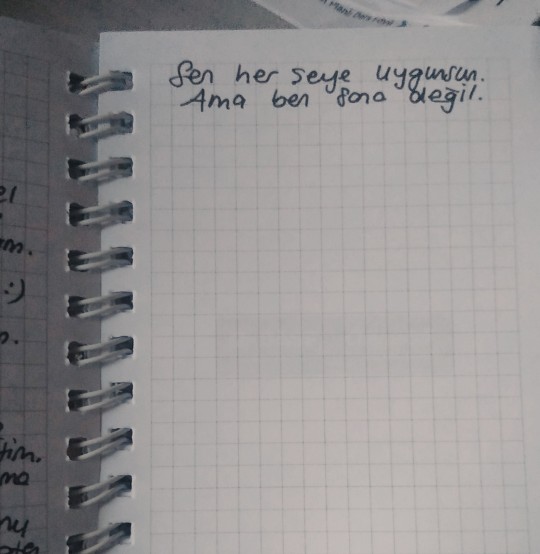 Sen her seye uygunsun.
Ama ben sana değil.
el
m.
:)
.
tim.
ma
ny